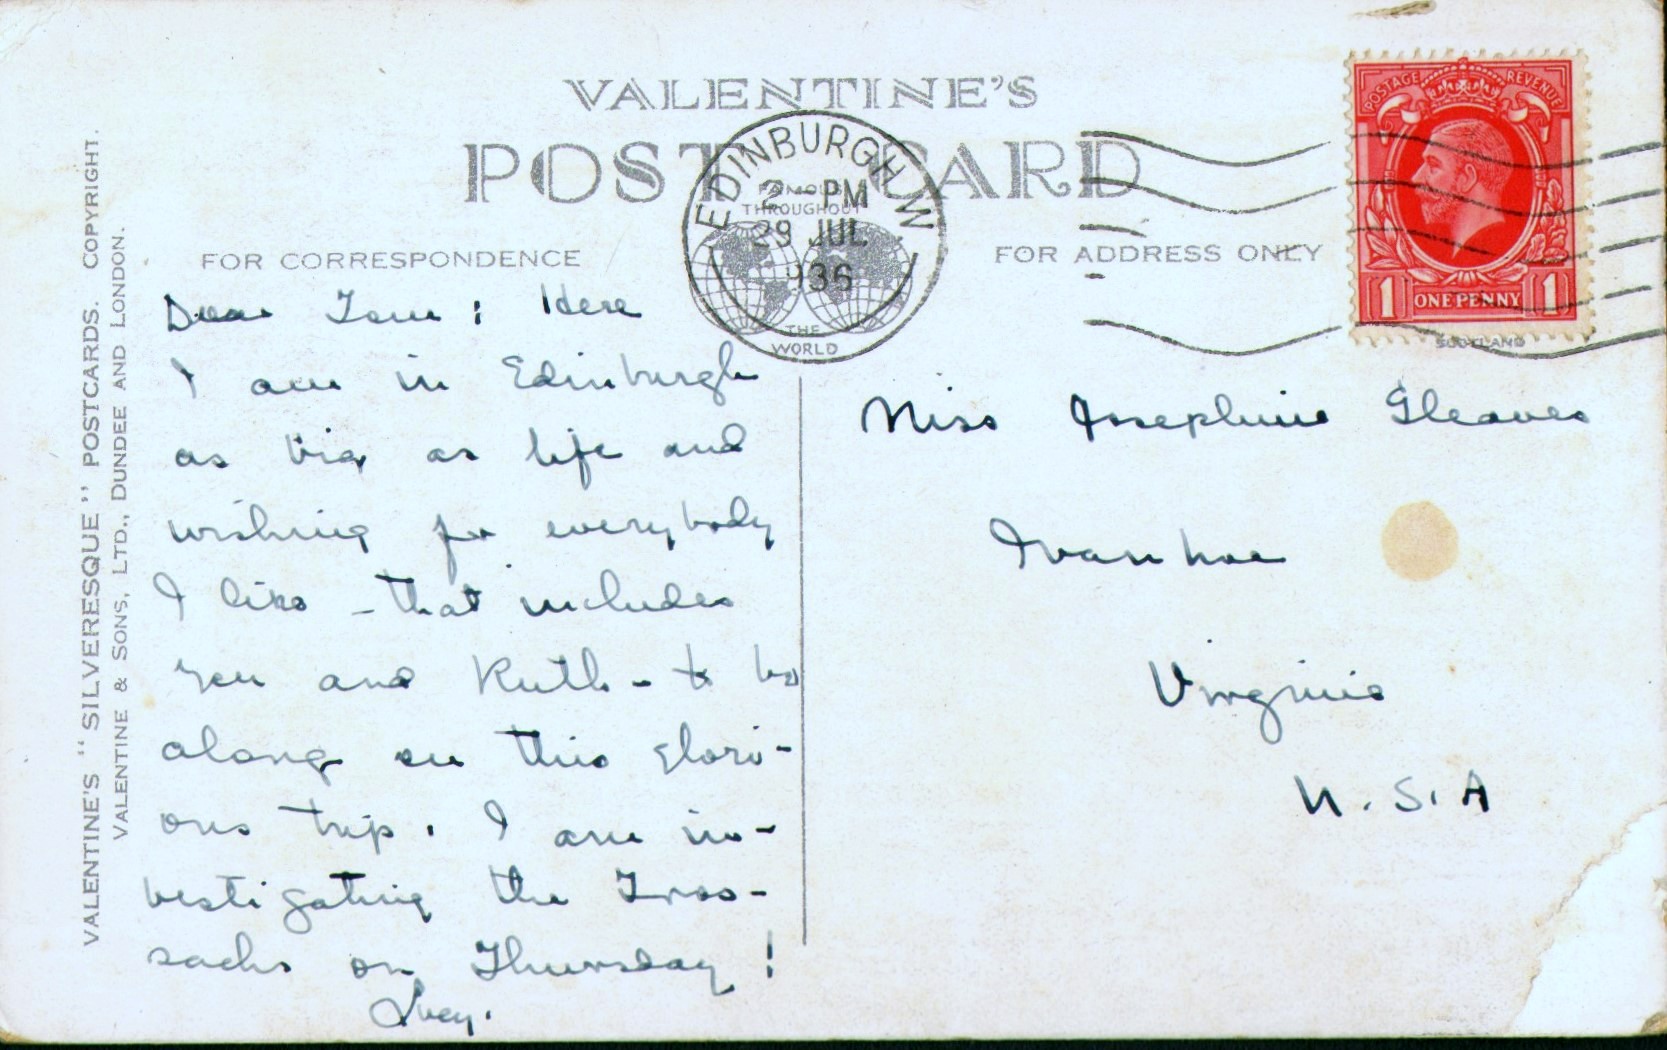 VALENTINE'S
POST CARD
FAMOUS
THROUGHOUT
THE
WORLD
EDINBURGH W
2 - PM
29 JUL
1936
POSTAGE REVENUE
1 ONE PENNY 1
SCOTLAND
VALENTINE'S "SILVERESQUE" POSTCARDS. COPYRIGHT.
VALENTINE & SONS, LTD., DUNDEE AND LONDON.
FOR CORRESPONDENCE
Dear : Here
I am in Edinburgh
as big as life and
wishing for everybody
I like - that includes
you and Ruth - to be
along on this glori-
ous trip. I am in-
vestigating the Tros-
sachs on Thursday!
FOR ADDRESS ONLY
Miss Josephine Gleaves
Ivanhoe
Virginia
U.S.A